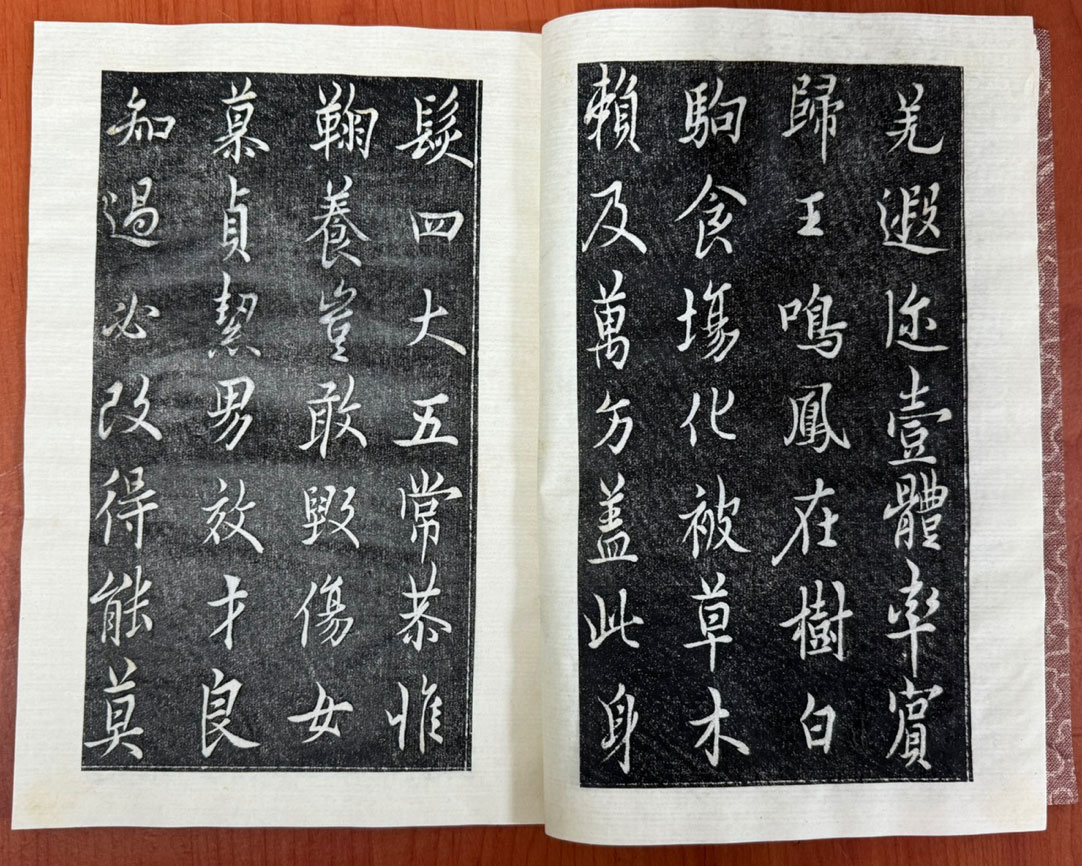 羌遐迩壹體率賔
歸王鳴鳳在樹白
駒食場化被草木
賴及萬方盖此身
髮四大五常恭惟
鞠養豈敢毀傷女
慕貞絜男效才良
知過必改得能莫